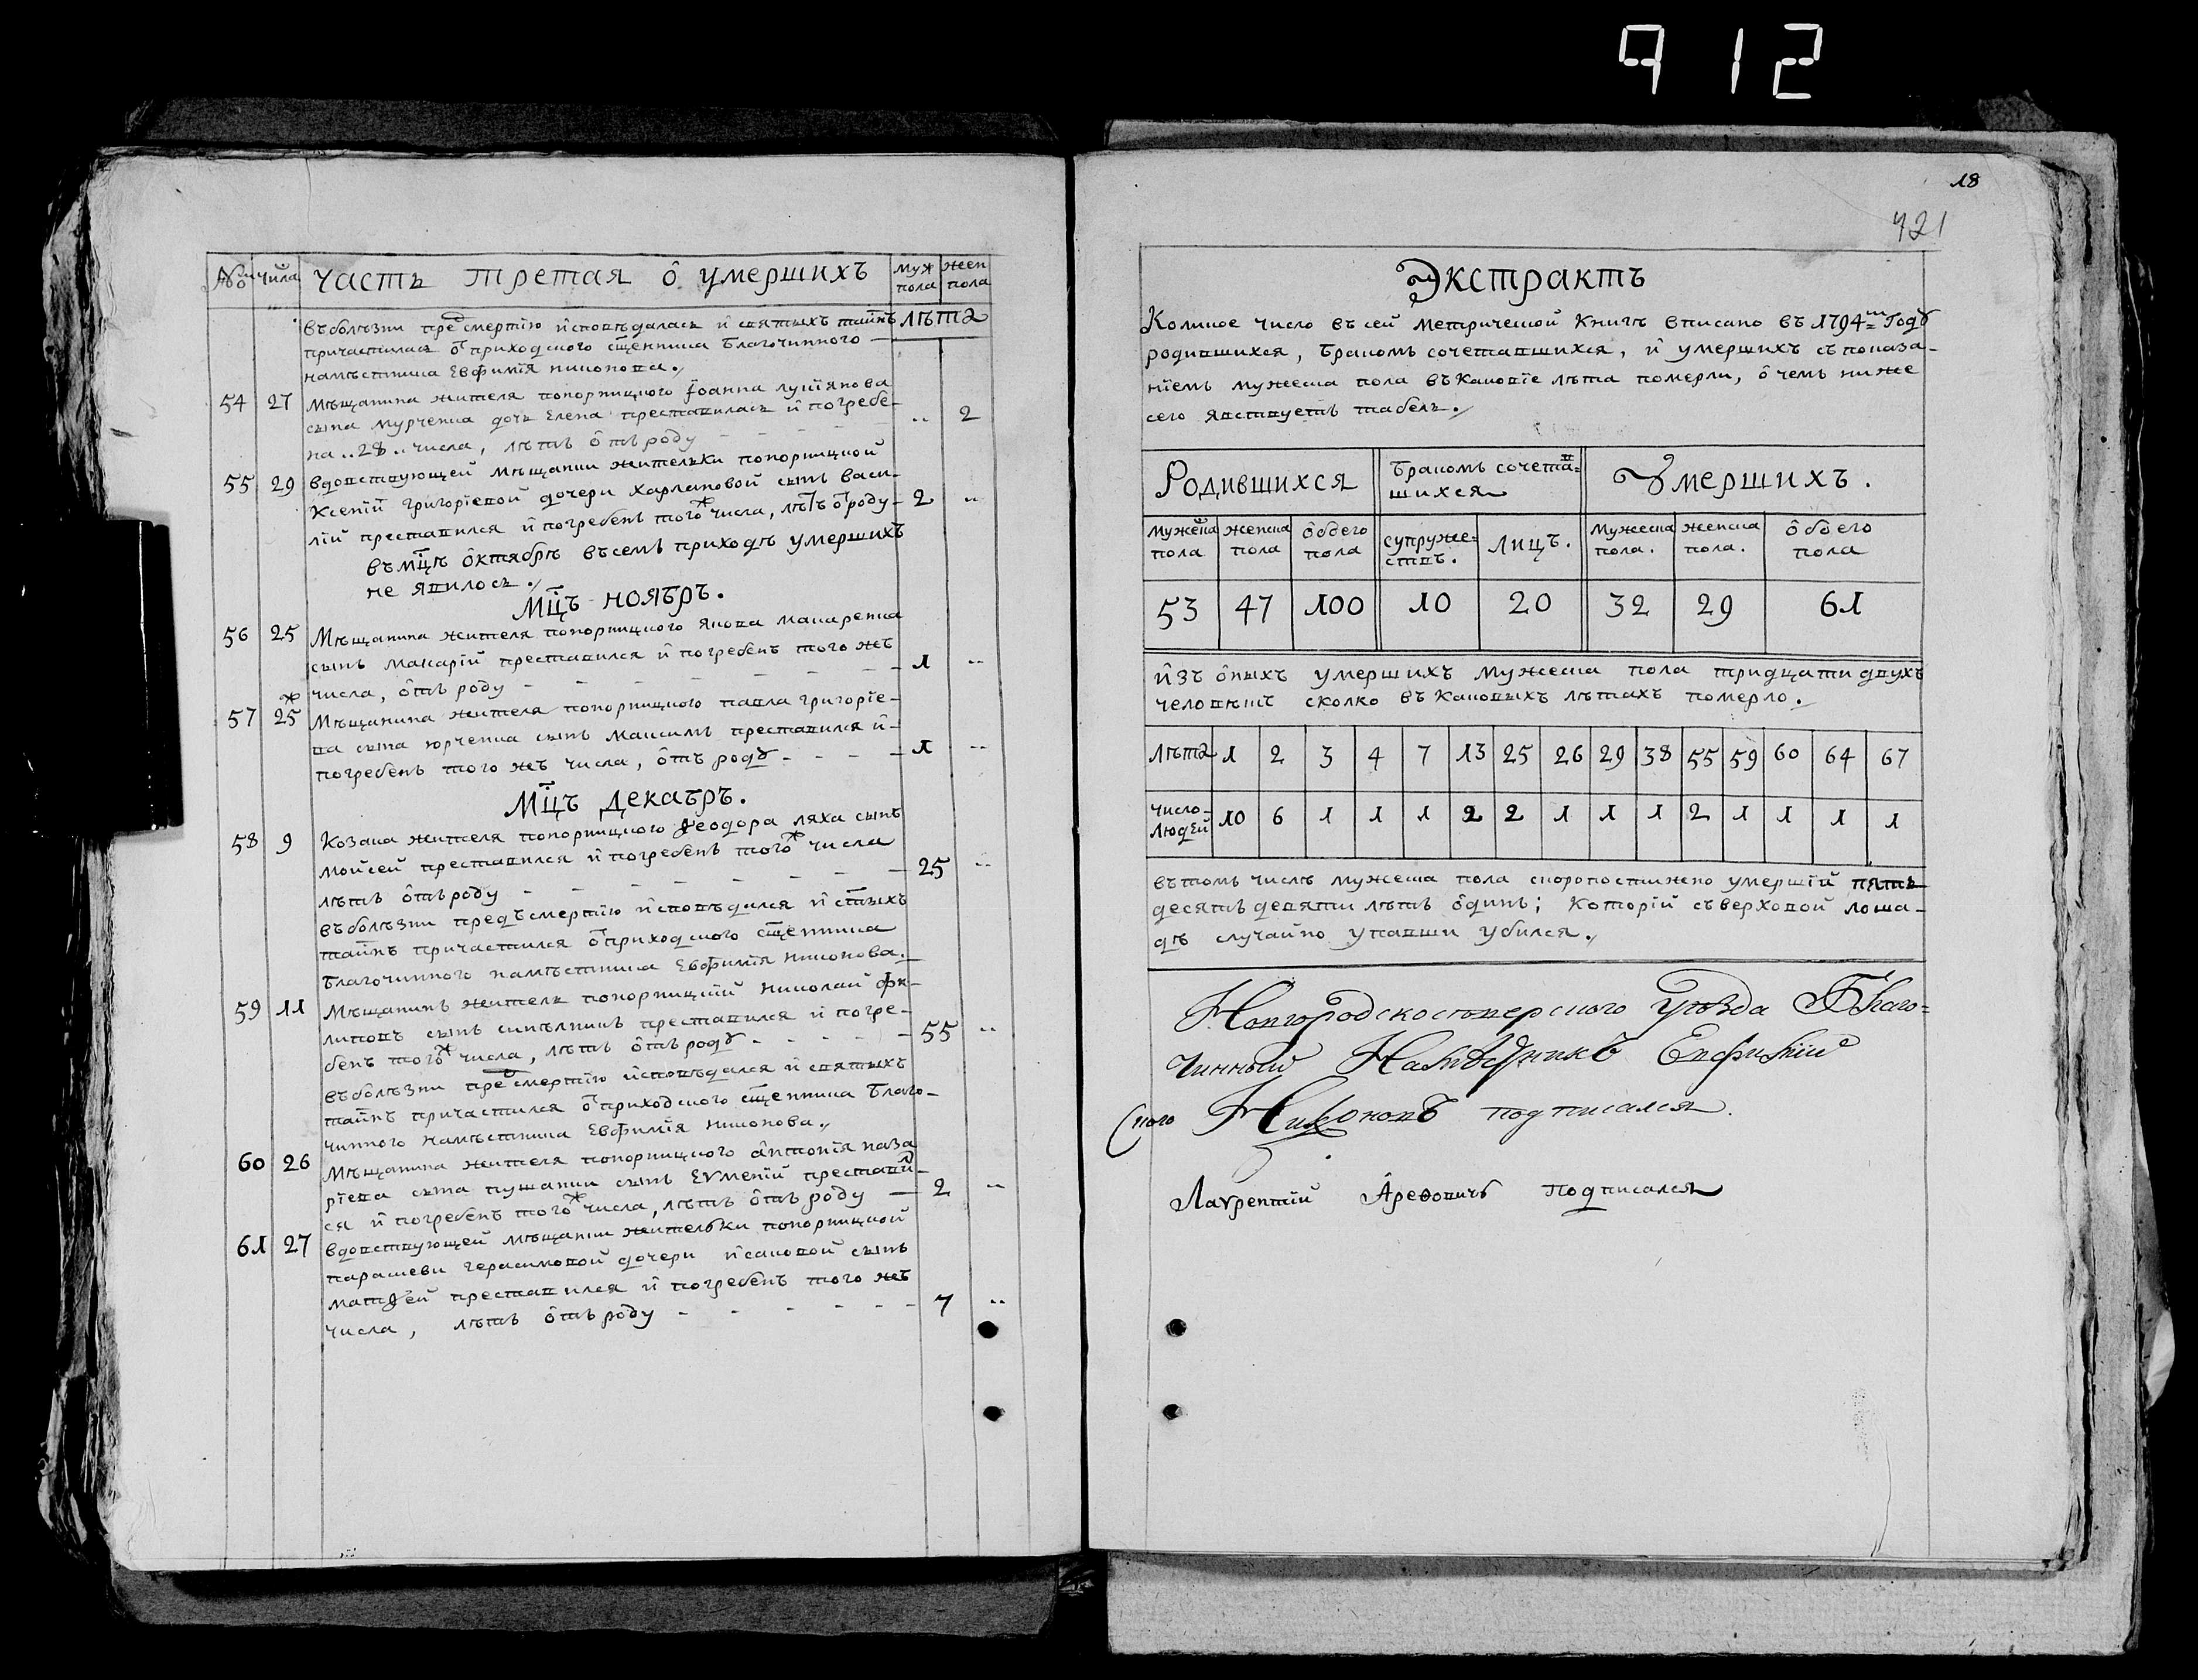 912
№ числа Часть третая ô умершихъ муж пола жен пола
въ болѣзни предсмертïю исповѣдалась и святыхъ тайнъ лѣта
причастилась ѿ приходского сщенника благочинного
намѣстника Евфимïя никонова.
54 27 Мѣщанина жителя понорницкого Iоанна лукïянова
сына мурченка дочь Елена преставилась и погребе- .. 2
на ..28.. числа, лѣтъ ôтъ роду
55 29 вдовствующей мѣщанки жительки понорницкой
Ксенïи григорïевой дочери харлановой сынъ васи-
лïй преставился и погребенъ того ж числа, лѣтъ ѿ роду 2 ..
въ мцѣ ôктябрѣ въ семъ приходѣ умершихъ
не явилось.
Мцъ ноябръ.
56 25 Мѣщанина жителя понорницкого якова макаренка
сынъ макарïй преставился и погребенъ того жъ
числа, ôтъ роду 1 ..
57 25 ж Мѣщанина жителя понорницкого павла григорïе-
ва сына юрченка сынъ максимъ преставился и
погребенъ того жъ числа, ôтъ роду 1 ..
Мцъ декабръ.
58 9 Козака жителя понорницкого Ѳеодора ляха сынъ
мойсей преставился и погребенъ того ж числа
лѣтъ ôтъ роду 25 ..
въ болѣзни предъ смертïю исповѣдался и стыхъ
тайнъ причастился ѿ приходского сщенника
благочинного намѣстника Евфимïя никонова.
59 11 Мѣщанинъ житель понорницкïй николай фи-
липовъ сынъ синѣлникъ преставился и погре-
бенъ того ж числа, лѣтъ ôтъ роду 55 ..
въ болѣзни предсмертïю исповѣдался и святыхъ
тайнъ причастился ѿ приходского сщенника благо-
чинного намѣстника Евфимïя никонова.
60 26 Мѣщанина жителя понорницкого антонïя наза
рïева сына пушанки сынъ Еvменïй преставил-
ся и погребенъ того ж числа, лѣтъ ôтъ роду 2 ..
61 27 вдовствующей мѣщанки жительки понорницкой
параскеви герасимовой дочери исаковой сынъ
матѳей преставился и погребенъ того жъ
числа, лѣтъ ôтъ роду 7 ..
18
421
Экстрактъ
Колкое число въ сей метрической Книгѣ вписано въ 1794м Году
родившихся, бракомъ сочетавшихся, и умершихъ съ показа-
нïемъ мужеска пола въ Каковïе лѣта померли, ô чемъ ниже
сего явствуетъ табель.
Родившихся бракомъ сочетав- шихся Умершихъ.
мужеска пола женска пола ôбоего пола супруже- ствъ. лицъ. мужеска пола. женска пола. ôбоего пола
53 47 100 10 20 32 29 61
изъ ôныхъ умершихъ мужеска пола тридцати двухъ
человѣкъ сколко въ Каковыхъ лѣтахъ померло.
лѣта 1 2 3 4 7 13 25 26 29 38 55 59 60 64 67
число- людей 10 6 1 1 1 2 2 1 1 1 2 1 1 1 1
въ томъ числѣ мужеска пола скоропостижно умершïй пять-
десятъ девяти лѣтъ ôдинъ; Которïй съ верховой лоша-
дѣ случайно упавши убился.
Новгородскосѣверского уѣзда Благо-
чинный Намѣсникъ Евфимïй
Никоновъ подписался.
Лаvрентïй Арефовичъ подписался